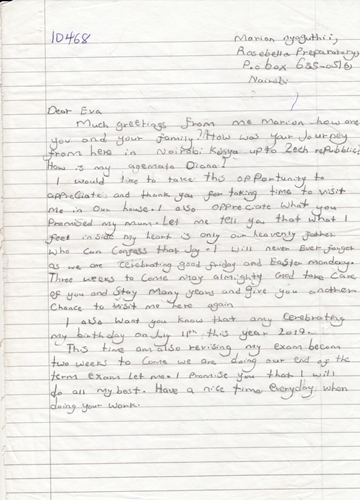 ID468
Marion nyaguthii,
Rosebella Preparatory,
P.o box 685-0516
Nairobi
Dear Eva
Much greetings from me Marion how are
you and your family? How was your journey
from here in Nairobi Kenya upto Zech republic?
How is my agemate Diana?
I would like to take this opportunity to
appreciate and thank you for taking time to visit
me in our house. I also appreciate what you
promised my mum. Let me tell you that what I
feel inside my heart is only our heavenly father
who can confess that joy. I will never ever forget
as we are celebrating good friday and Easter monday.
Three weeks to come may almighty God take care
of you and stay many years and give you another
chance to visit me here again
I also want you know that any celebrating
my birthday on July 11th this year 2019.
This time am also revising my exam becom
two weeks to come we are doing our end of the
term exam let me. I promise you that I will
do all my best. Have a nice time everyday when
doing your work.